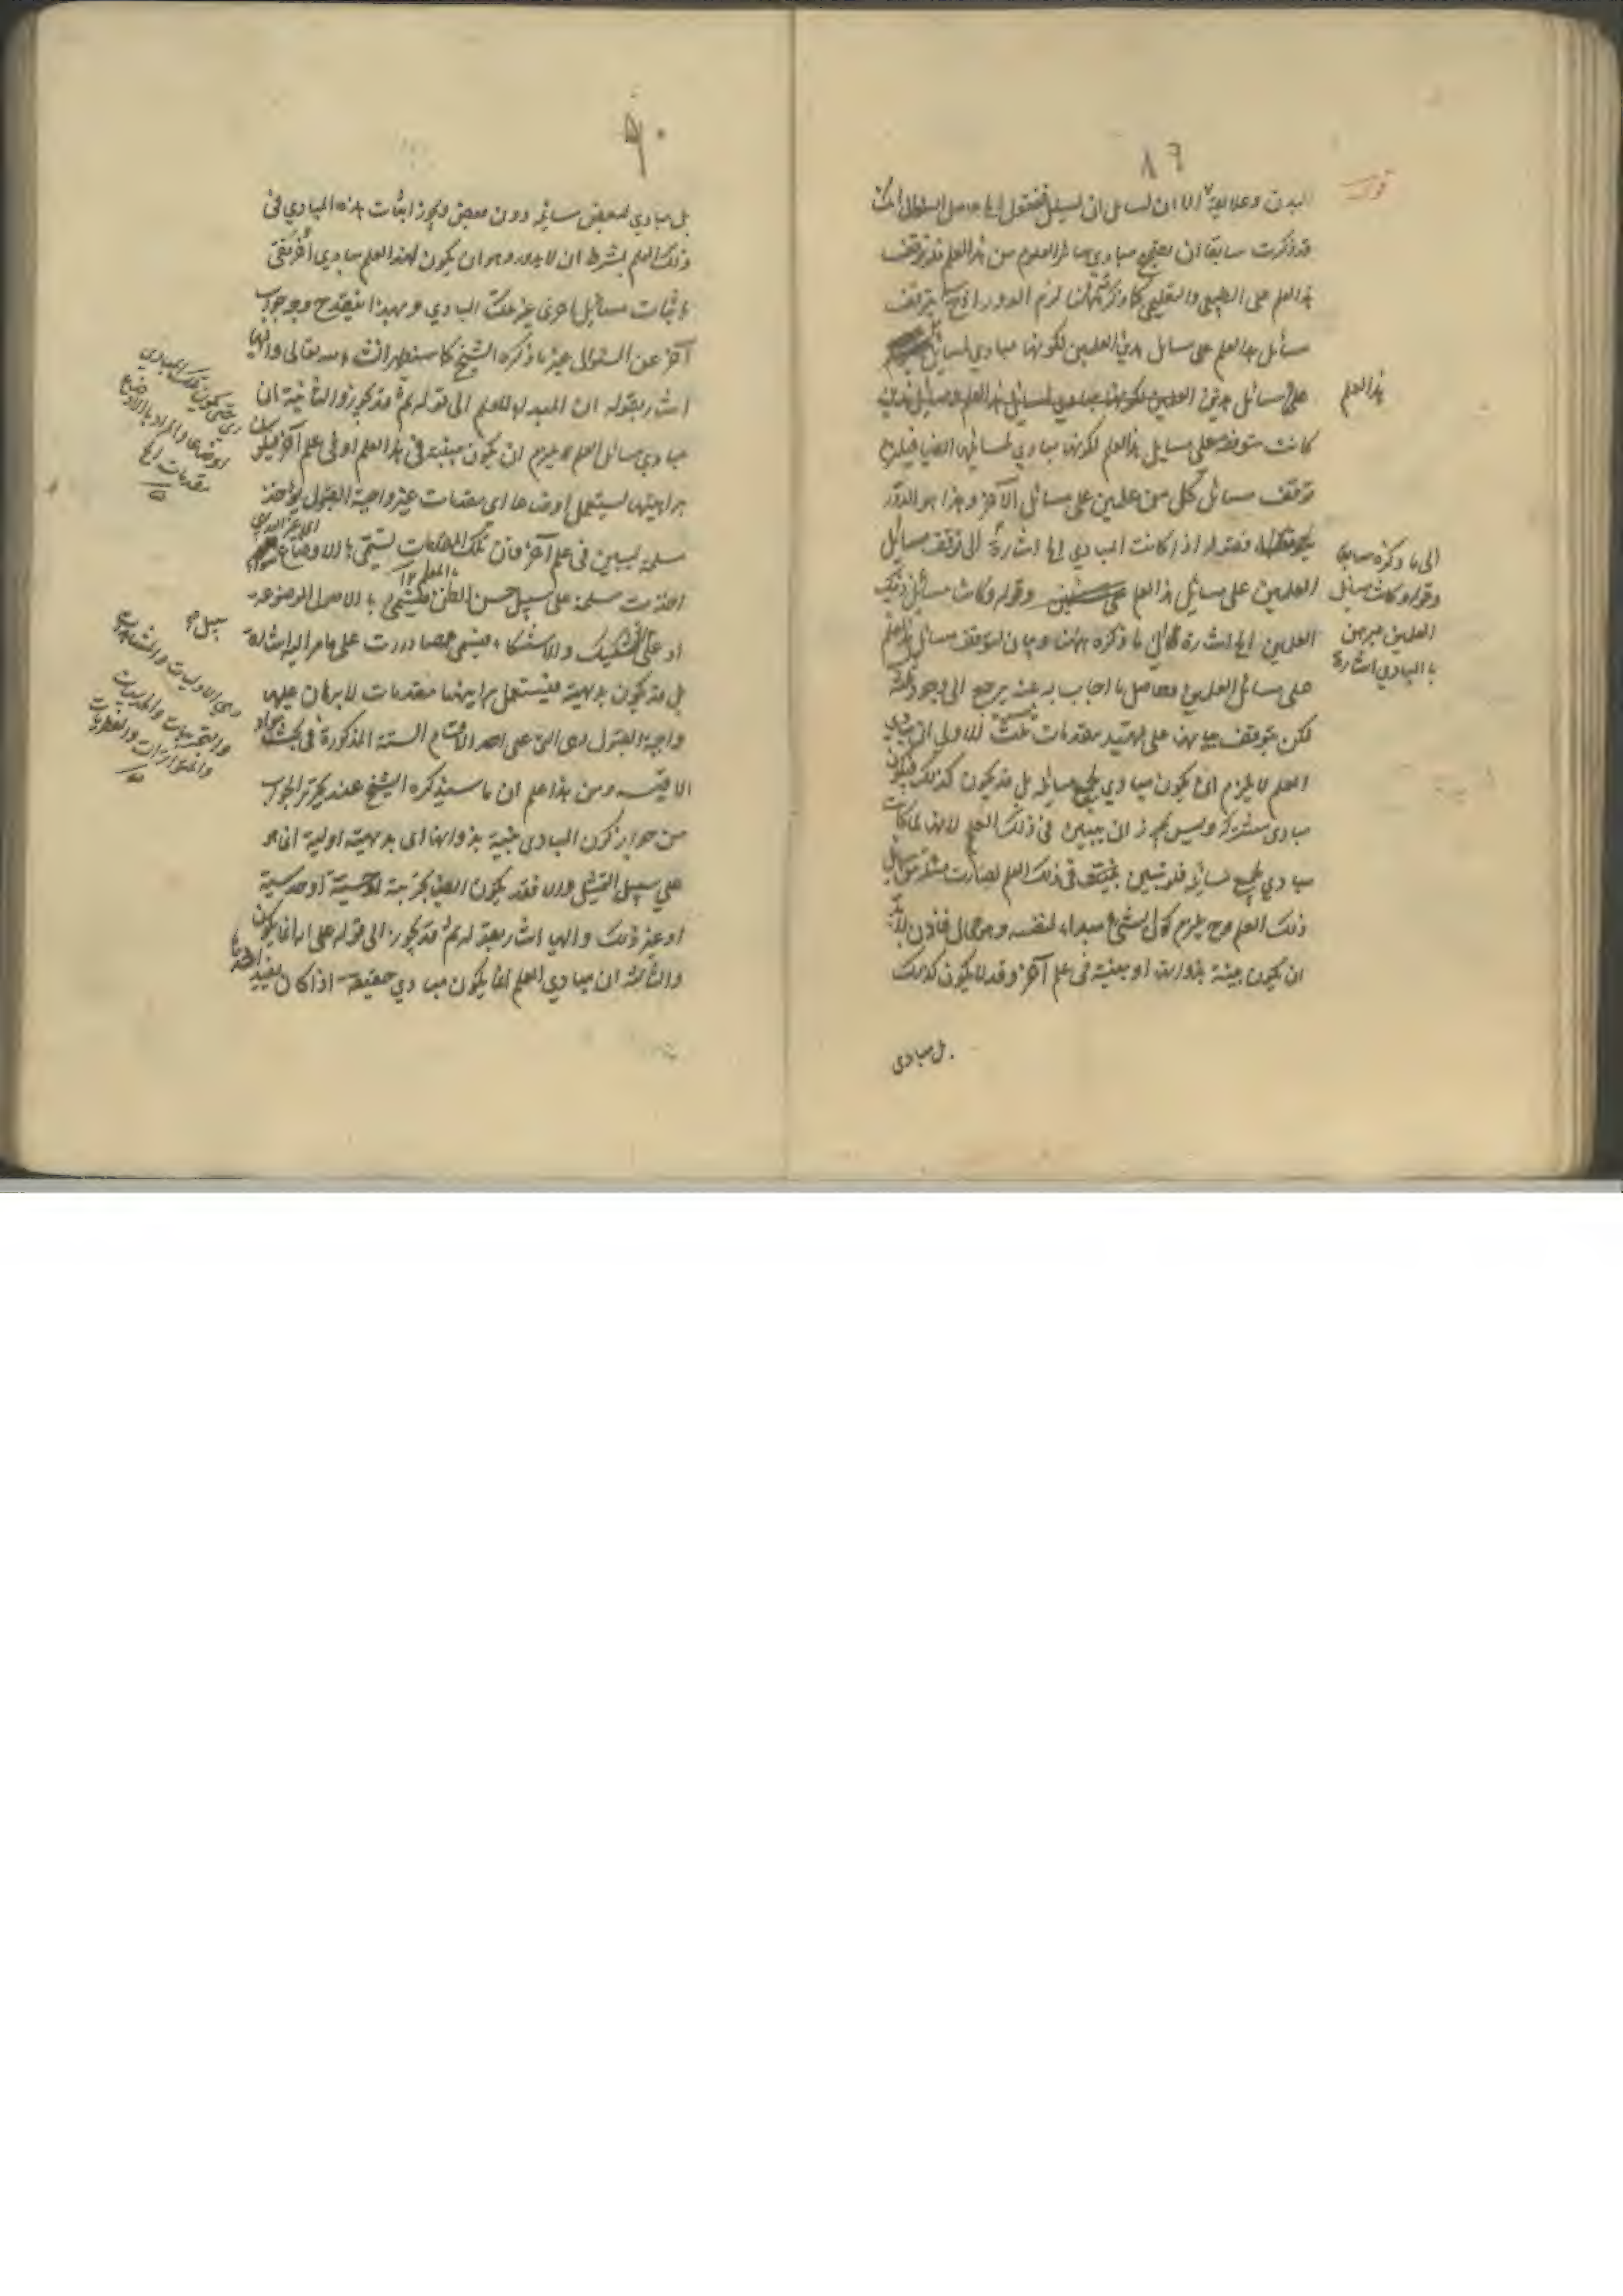 ٨٩
قوله
البدن وعلائقه الا ان لسائل ان يسئل فيقول الخ حاصل السؤال انك
قد ذكرت سابقا ان يتضح مبادي سائر العلوم من هذا العلم قد توقف
هذا العلم على الطبيعي والتعليمي كما ذكرته ههنا لزم الدور اذ يتوقف
مسائل هذا العلم على مسائل هذين العلمين لكونها مبادي لمسائل
هذا العلم
على مسائل هذين العلمين لكونها مبادي لمسائل هذا العلم ومسائل هذين
كانت متوقفة على مسايل هذا العلم لكونها مبادي لمسائلها ايضا فيلزم
توقف مسائل كل من علمين على مسائل الآخر وهذا هو الدور
فقوله اذا كانت المبادي الخ اشارة الى توقف مسائل
العلمين على مسائل هذا العلم وقوله وكانت مسائل ذينك
العلمين الخ اشارة الى ما ذكره ههنا وبيان لتوقف مسائل هذا العلم
الى ما ذكره سابقا
وقوله وكانت مسائل
العلمين تبرهن
بالمبادي اشارة
على مسائل العلمين وحاصل ما اجاب به عنه يرجع الى وجوه ثلثة
لكن يتوقف بيانها على تمهيد مقدمات ثلث الاولى ان مبادي
العلم لا يلزم ان يكون مبادي لجميع مسائله بل قد يكون كذلك فيكون
مبادي مشتركة وليس يجوز ان يبين في ذلك العلم لانها لما كانت
مبادي لجميع مسائله فلو تبين في ذلك العلم لصارت من مسائل
ذلك العلم وح يلزم كون الشئ مبداء لنفسه وهو محال فاذن لابد
ان يكون بينة بذواتها او مبينة في علم آخر وقد لا يكون كذلك
بل مبادي
٩٠
بل مبادي لبعض مسائله دون بعض ويجوز اثبات هذه المبادي في
ذلك العلم بشرط ان لا يدور وهو ان يكون لهذا العلم مبادي اخر يبتني
باثبات مسايل اخرى غير تلك المبادي وبهذا ينقدح وجه جواب
آخر عن السؤال غير ما ذكره الشيخ كما ستطهر انشاء الله تعالى واليها
اشار بقوله ان المبدء للعلم الى قوله ثم قد يجوز والثانية ان
مبادي مسائل العلم لا يلزم ان يكون مبينة في هذا العلم او في علم آخر فيكون
براهينها يستعمل اوضاعا اي مقدمات غير واجبة القبول يؤخذ
مسلمة ليبين في علم آخر فان تلك المقدمات تسمى بالاوضاع
اخذت مسلمة على سبيل حسن الظن بالمعلم فيسمى بالاصول الموضوعة
او على التشكيك والاستنكار فيسمى مصادرات على ما مر اليه اشارة
بل قد يكون بديهية فيستعمل براهينها مقدمات لا برهان عليها
واجبة القبول وهي التي على احد الاقسام الستة المذكورة في بحث مواد
الاقيسة ومن هذا علم ان ما سيذكره الشيخ عند تحرير الجواب
من جواز كون المبادي بينة بذواتها اي بديهية اولية انما هو
على سبيل التمثيل والا فقد يكون ايضا تجربية او حسية او حدسية
او غير ذلك واليها اشار بقوله ثم قد يجوز الى قوله على انه انما يكون
والثالثة ان مبادي العلم انما يكون مبادي حقيقة اذا كان يفيد اخذها
اوضاعا والمراد بالاوضاع
مقدمات الخ
سبيل
وهي الاوليات والمشاهدات
والتجربيات والحدسيات
والمتواترات والفطريات